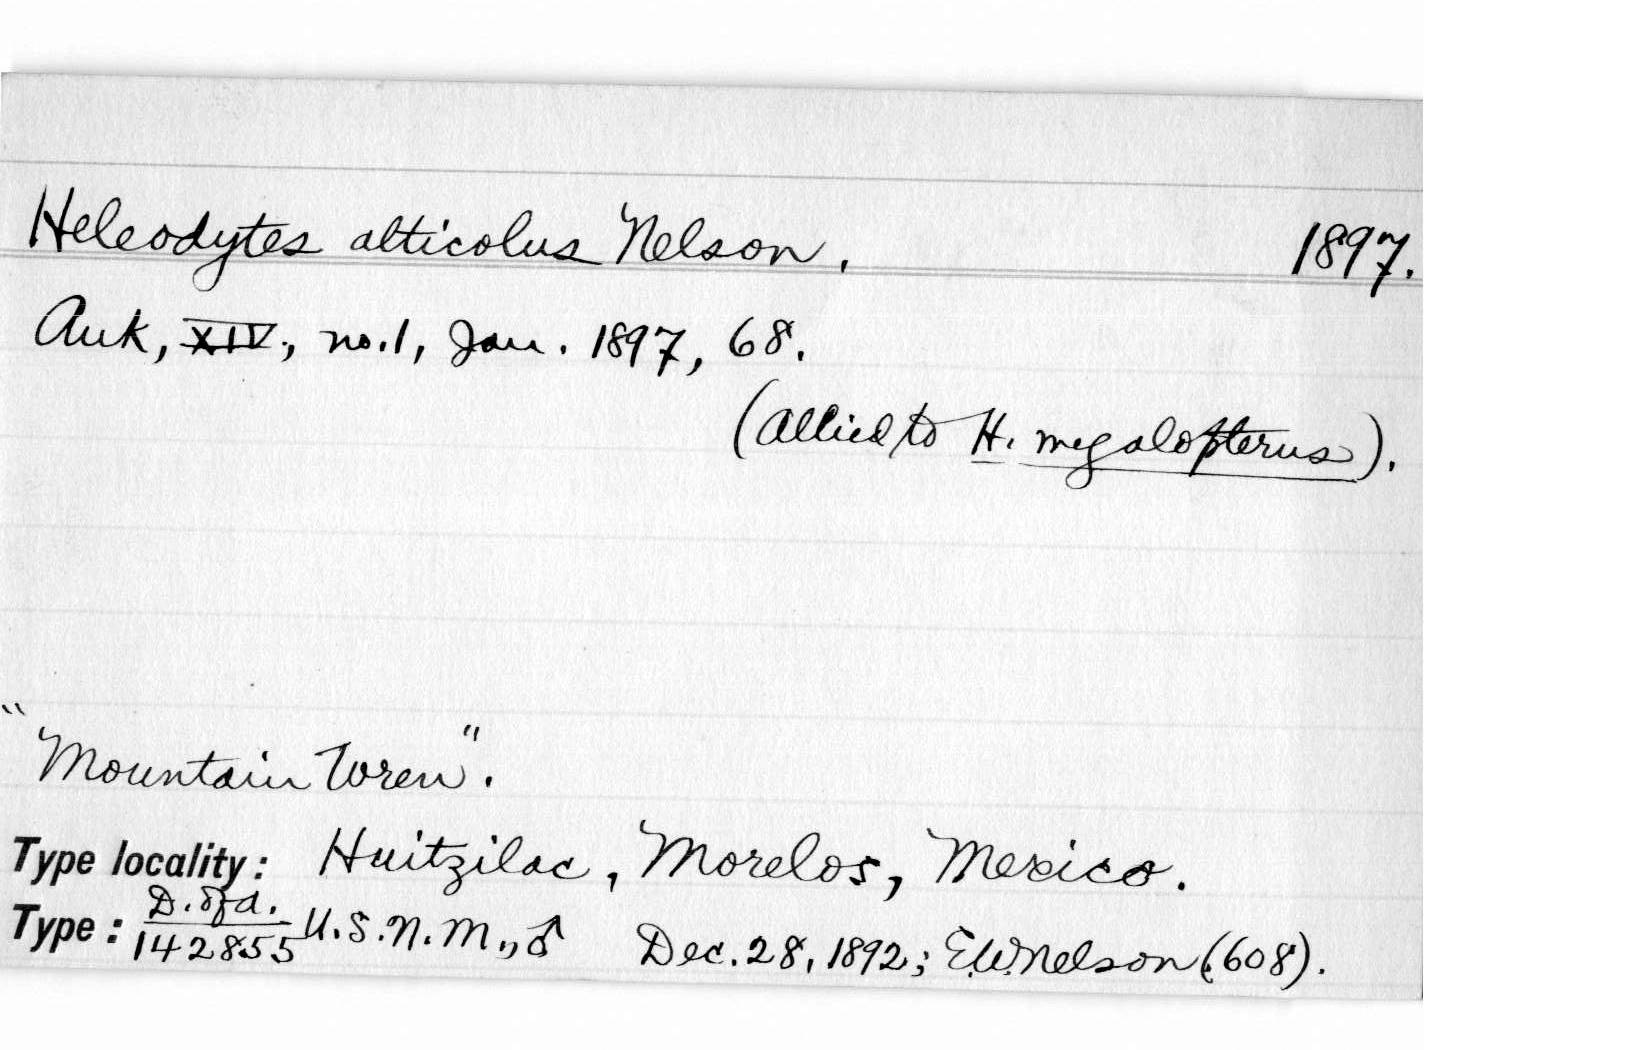 Heleodytes alticolus Nelson. 1897.
Auk, XIV, no.1, Jan. 1897, 68.
(Allied to H. megalopterus).
"Mountain Wren".
Type locality: Huitzilac, Morelos, Mexico.
D. of A.
Type: 142855 U.S.N.M., ♂ Dec. 28, 1892; E.W. Nelson (608).